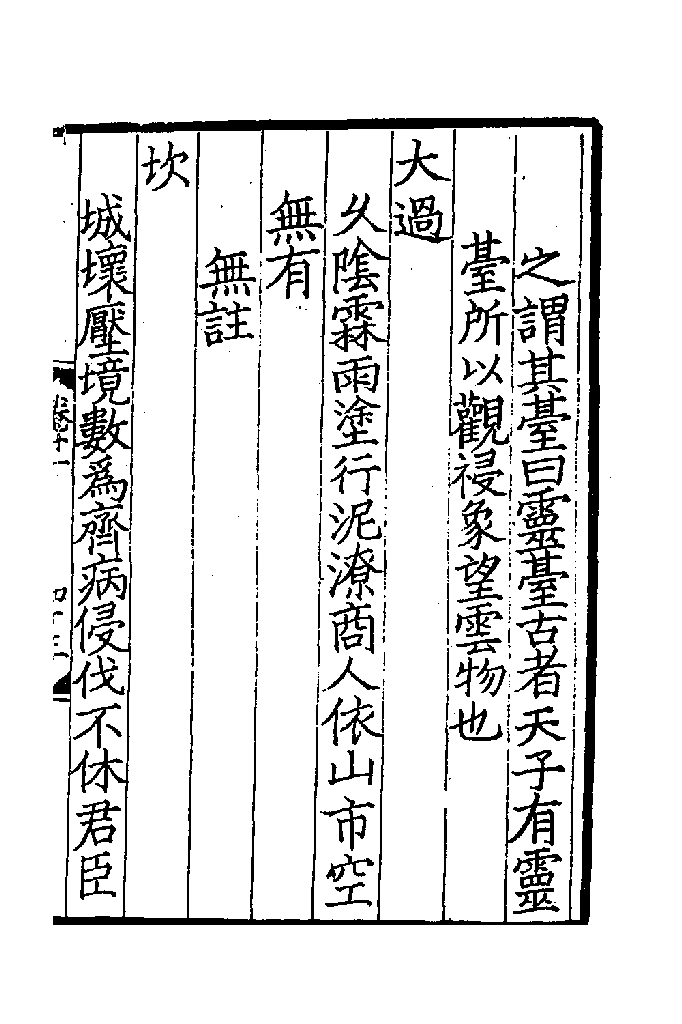 之謂其臺曰靈臺古者天子有靈
臺所以觀祲象望雲物也
大過
乆陰霖雨塗行泥潦商人依山市空
無有
無註
坎
城壞壓境數爲齊病侵伐不休君臣